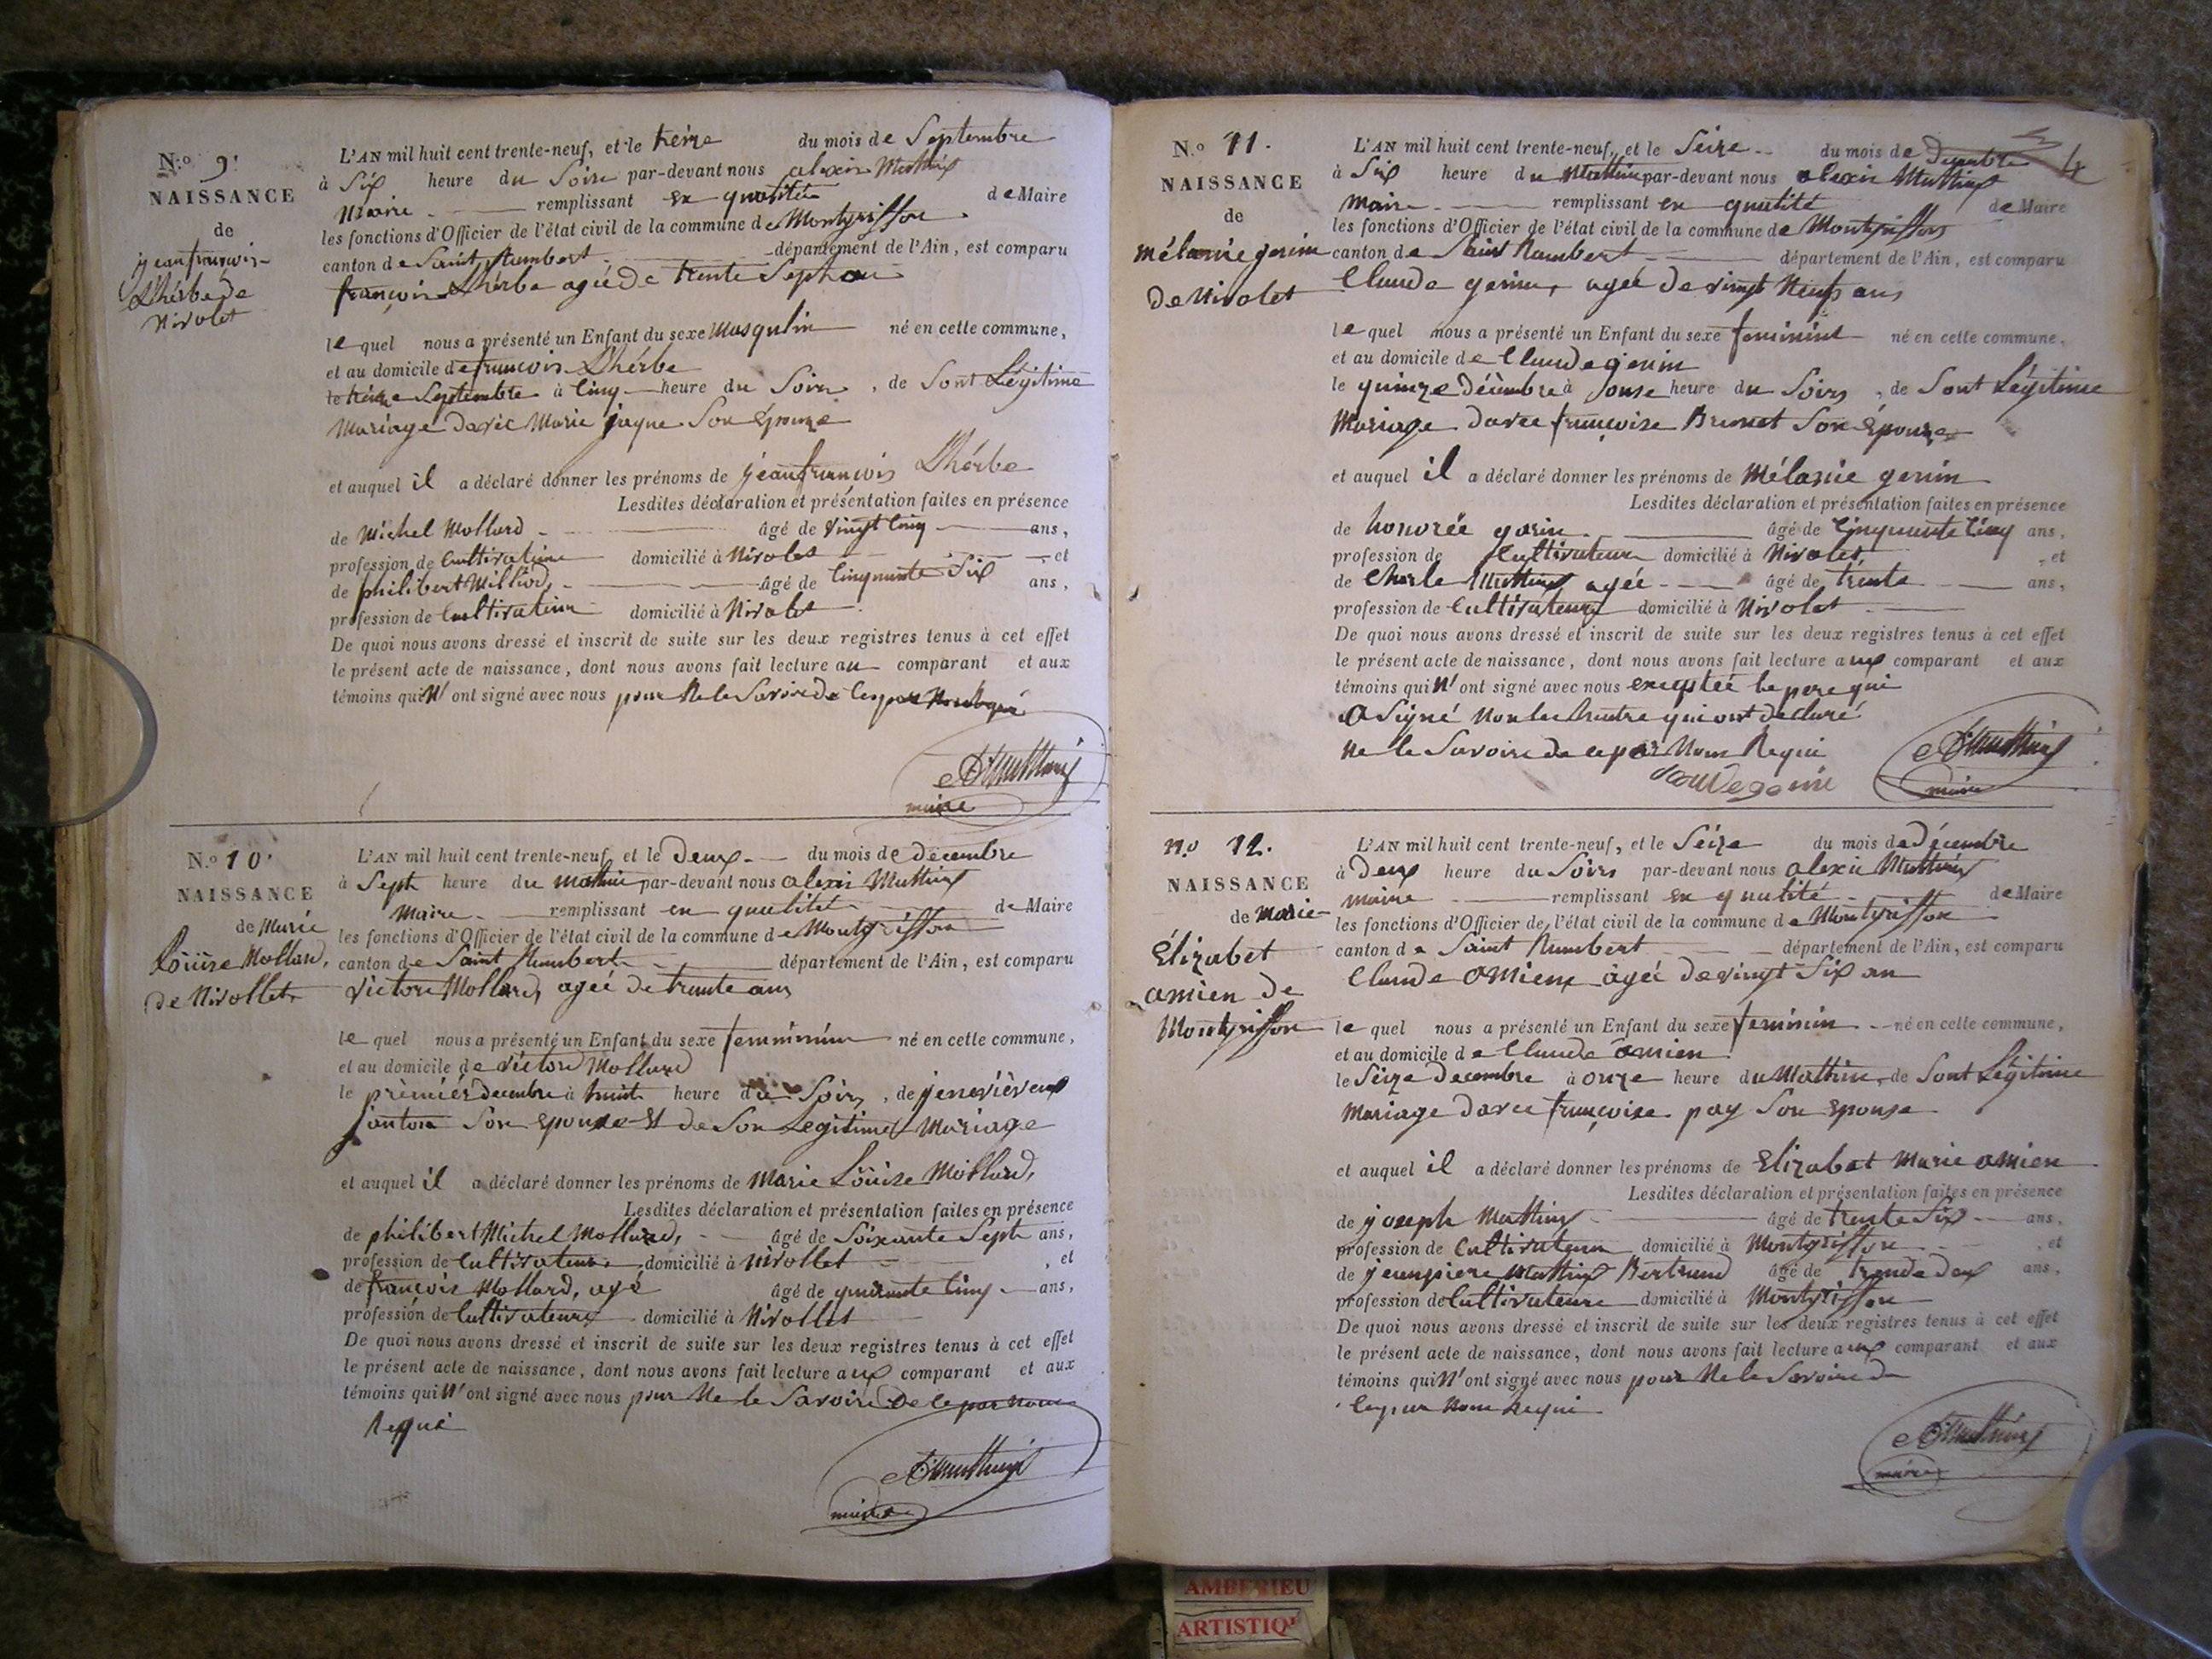 N.o 9.
NAISSANCE
de
jean francois
Lhérbe de
Nivolet
L'AN mil huit cent trente-neuf, et le treize du mois de Septembre
à Six heure du Soire par-devant nous alexis Muthis
Maire remplissant en qualité de Maire
les fonctions d'Officier de l'état civil de la commune de Montgriffon
canton de Saint Rambert département de l'Ain, est comparu
françois Lhérbe agée de trente Sept an
le quel nous a présenté un Enfant du sexe Masqulin né en cette commune,
et au domicile de francois Lhérbe
le treize Septembre à Cinq heure du Soire, de Sont Légitime
Mariage davéc Marie jayne Son Epouze
et auquel il a déclaré donner les prénoms de jean françois Lhérbe
Lesdites déclaration et présentation faites en présence
de Michel Mollard âgé de vingt cinq ans,
profession de Cultivateure domicilié à Nivolet et
de philibert Milliard, âgé de Cinquante Six ans,
profession de Cultivateur domicilié à Nivolet
De quoi nous avons dressé et inscrit de suite sur les deux registres tenus à cet effet
le présent acte de naissance, dont nous avons fait lecture au comparant et aux
témoins qui N'ont signé avec nous pour Ne le Savoire de
maire
N.o 10.
NAISSANCE
de Marie
Loüise Mollard,
de Nivollet
L'AN mil huit cent trente-neuf et le Deux du mois de decembre
à Sept heure du mathin par-devant nous alexis Muthiux
Maire remplissant en qualité de Maire
les fonctions d'Officier de l'état civil de la commune de Montgriffon
canton de Saint Rambert département de l'Ain, est comparu
victore Mollard, agée de trante ans
le quel nous a présenté un Enfant du sexe femminin né en cette commune,
et au domicile de victore Mollard
le prémiér decembre à huit heure du Soire, de jeneviève
jantone Son Epouze Et de Son Legitime Mariage
et auquel il a déclaré donner les prénoms de Marie Loüise Mollard,
Lesdites déclaration et présentation faites en présence
de philibert Michel Mollard, âgé de Soixante Sept ans,
profession de Cultivateure domicilié à Nivollet, et
de françois Mollard, agé âgé de quarante Cinq ans,
profession de Cultivateure domicilié à Nivollet
De quoi nous avons dressé et inscrit de suite sur les deux registres tenus à cet effet
le présent acte de naissance, dont nous avons fait lecture aux comparant et aux
témoins qui N'ont signé avec nous pour Ne le Savoire De ce par nous
Requi
maire
N.o 11.
NAISSANCE
de
Mélanie genin
De Nivolet
4
L'AN mil huit cent trente-neuf, et le Seize du mois de Decembre
à Six heure du Matthin par-devant nous alexis Muthiux
Maire remplissant en qualité de Maire
les fonctions d'Officier de l'état civil de la commune de Montgriffon
canton de Saint Rambert département de l'Ain, est comparu
Claude genin, agée de vingt Neufs ans
le quel nous a présenté un Enfant du sexe feminint né en cette commune,
et au domicile de Claude genin
le quinze Décembre à onse heure du Soire, de Sont Légitime
Mariage Davec françoise Brunet Son Epouze
et auquel il a déclaré donner les prénoms de Mélanie genin
Lesdites déclaration et présentation faites en présence
de honorée genin âgé de Cinquante Cinq ans,
profession de Cultivateure domicilié à Nivolet, et
de Charle Muthiux agée âgé de trente ans,
profession de Cultivateure domicilié à Nivolet
De quoi nous avons dressé et inscrit de suite sur les deux registres tenus à cet effet
le présent acte de naissance, dont nous avons fait lecture aux comparant et aux
témoins qui N'ont signé avec nous exceptée le pere qui
a Signé Non les hautre qui ont declaré
Ne le Savoire de ce par Nous Requi
maire
N.o 12.
NAISSANCE
de Marie
Elizabet
amien de
Montgriffon
L'AN mil huit cent trente-neuf, et le Seize du mois de décembre
à Deux heure du Soire par-devant nous alexis Muthiux
maire remplissant en qualité de Maire
les fonctions d'Officier de l'état civil de la commune de Montgriffon
canton de Saint Rambert département de l'Ain, est comparu
Claude amien agée de vingt Six an
le quel nous a présenté un Enfant du sexe feminin né en cette commune,
et au domicile de Claude amien
le Seize Decembre à onze heure du Matthin, de Sont Légitime
Mariage Davec françoise pay Son Epouse
et auquel il a déclaré donner les prénoms de Elizabet Marie amien
Lesdites déclaration et présentation faites en présence
de joseph Muthiux âgé de trente Six ans,
profession de Cultivateure domicilié à Montgriffon, et
de jeanpiere Muthiux Bertrand âgé de trende deux ans,
profession de Cultivateure domicilié à Montgriffon
De quoi nous avons dressé et inscrit de suite sur les deux registres tenus à cet effet
le présent acte de naissance, dont nous avons fait lecture aux comparant et aux
témoins qui N'ont signé avec nous pour Ne le Savoire De
Ce par Nous Requi
maire
AMBERIEU
ARTISTIQ